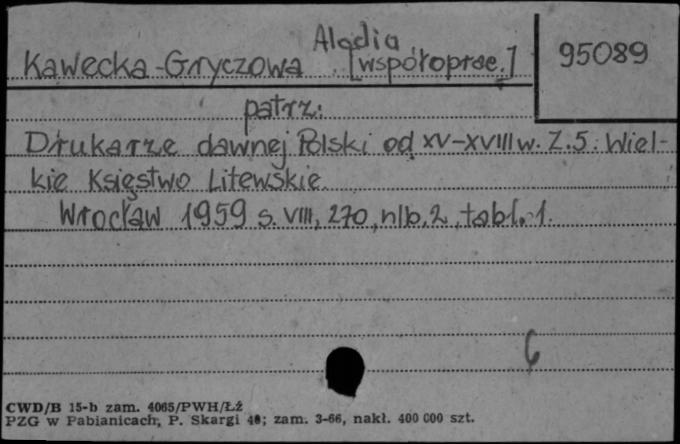 Alodia
Kawecka-Gryczowa [współoprac.]
95089
patrz:
Drukarze dawnej Polski od XV-XVIII w. Z.5: Wiel-
kie Księstwo Litewskie.
Wrocław 1959 s. VIII, 270, nlb. 2, tabl. 1.
6
CWD/B 15-b zam. 4065/PWH/Łź
PZG w Pabianicach, P. Skargi 40; zam. 3-66, nakł. 400 000 szt.